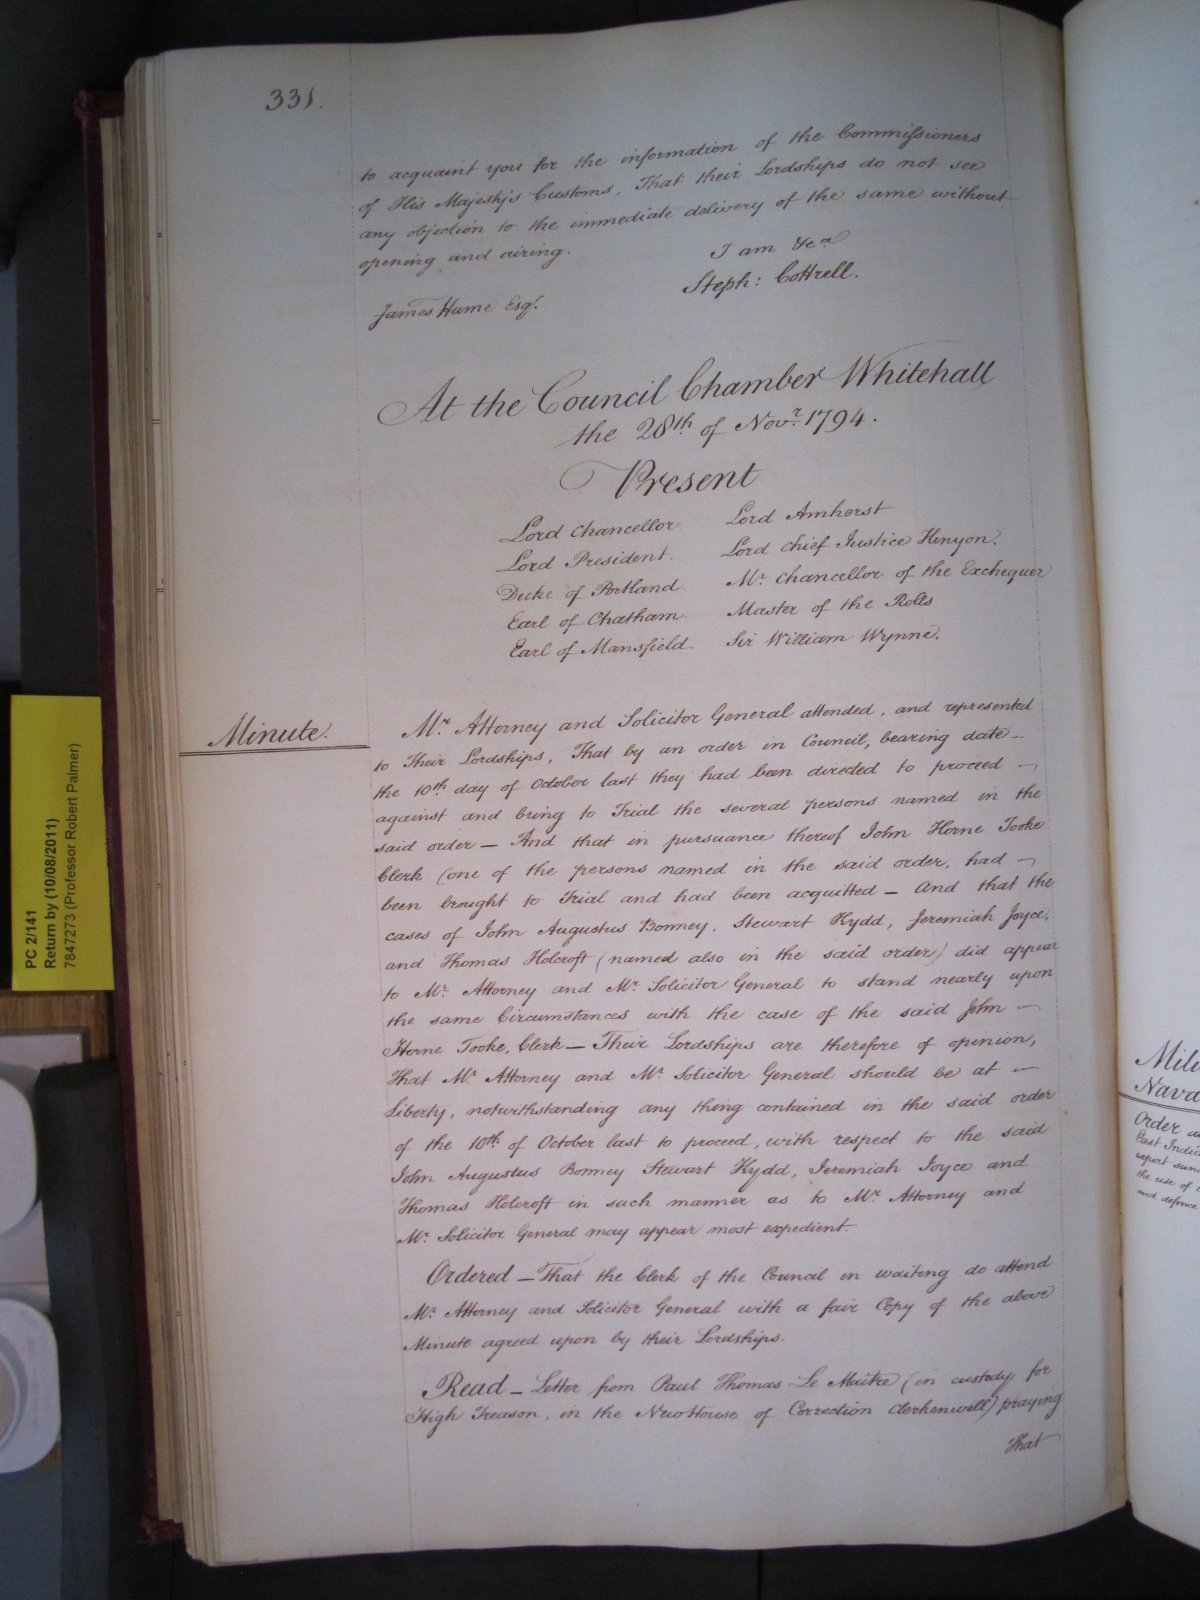 331.
to acquaint you for the information of the Commissioners
of His Majesty's Customs, That their Lordships do not see
any objection to the immediate delivery of the same without
opening and airing.
I am &ca
Steph: Cottrell.
James Hume Esqr.
At the Council Chamber Whitehall
the 28th of Novr 1794.
Present
Lord Chancellor
Lord President.
Duke of Portland.
Earl of Chatham.
Earl of Mansfield.
Lord Amherst
Lord Chief Justice Kenyon.
Mr. Chancellor of the Exchequer
Master of the Rolls
Sir William Wynne.
Minute.
Mr. Attorney and Solicitor General attended, and represented
to Their Lordships, That by an order in Council, bearing date —
the 10th day of October last they had been directed to proceed —
against and bring to Trial the several persons named in the
said order — And that in pursuance thereof John Horne Tooke
Clerk (one of the persons named in the said order, had —
been brought to Trial and had been acquitted — And that the
cases of John Augustus Bonney, Stewart Kydd, Jeremiah Joyce,
and Thomas Holcroft (named also in the said order) did appear
to Mr. Attorney and Mr. Solicitor General to stand nearly upon
the same Circumstances with the case of the said John —
Horne Tooke, Clerk — Their Lordships are therefore of opinion,
That Mr. Attorney and Mr. Solicitor General should be at —
Liberty, notwithstanding any thing contained in the said order
of the 10th of October last to proceed, with respect to the said
John Augustus Bonney Stewart Kydd, Jeremiah Joyce and
Thomas Holcroft in such manner as to Mr. Attorney and
Mr. Solicitor General may appear most expedient.
Ordered — That the Clerk of the Council in waiting do attend
Mr. Attorney and Solicitor General with a fair Copy of the above
Minute agreed upon by their Lordships.
Read — Letter from Paul Thomas Le Maitre (in custody for
High Treason, in the New House of Correction Clerkenwell) praying
That
PC 2/141
Return by (10/08/2011)
7847273 (Professor Robert Palmer)
Order
East India
the use of
and defence